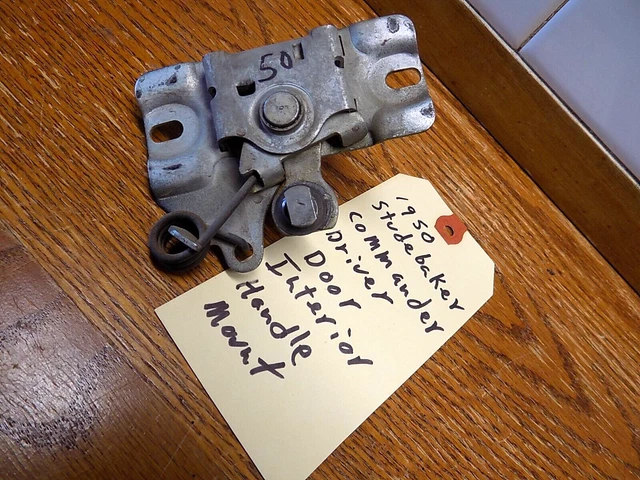 507
1950
Studebaker
commander
Driver
Door
Interior
Handle
Mount